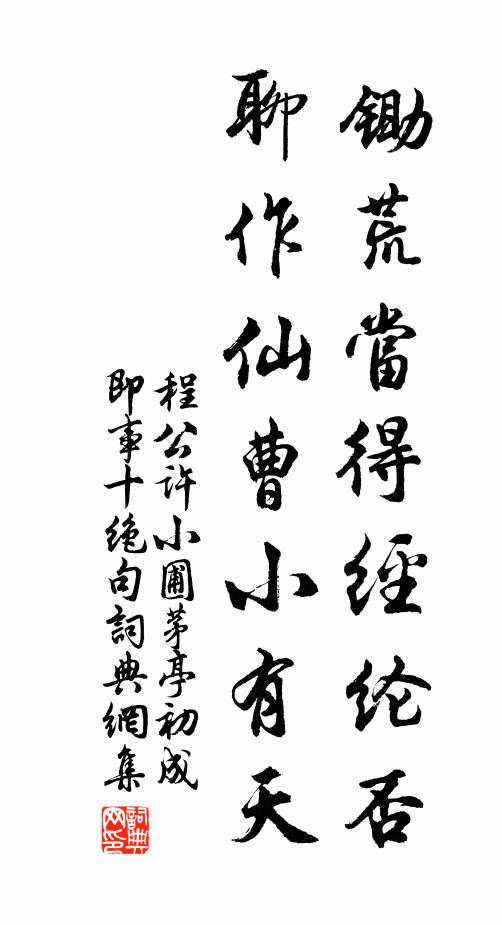 鋤荒當得經纶否
聊作仙曹小有天
程公許小圃茅亭初成
即事十绝句詞典網集
詞典
网印